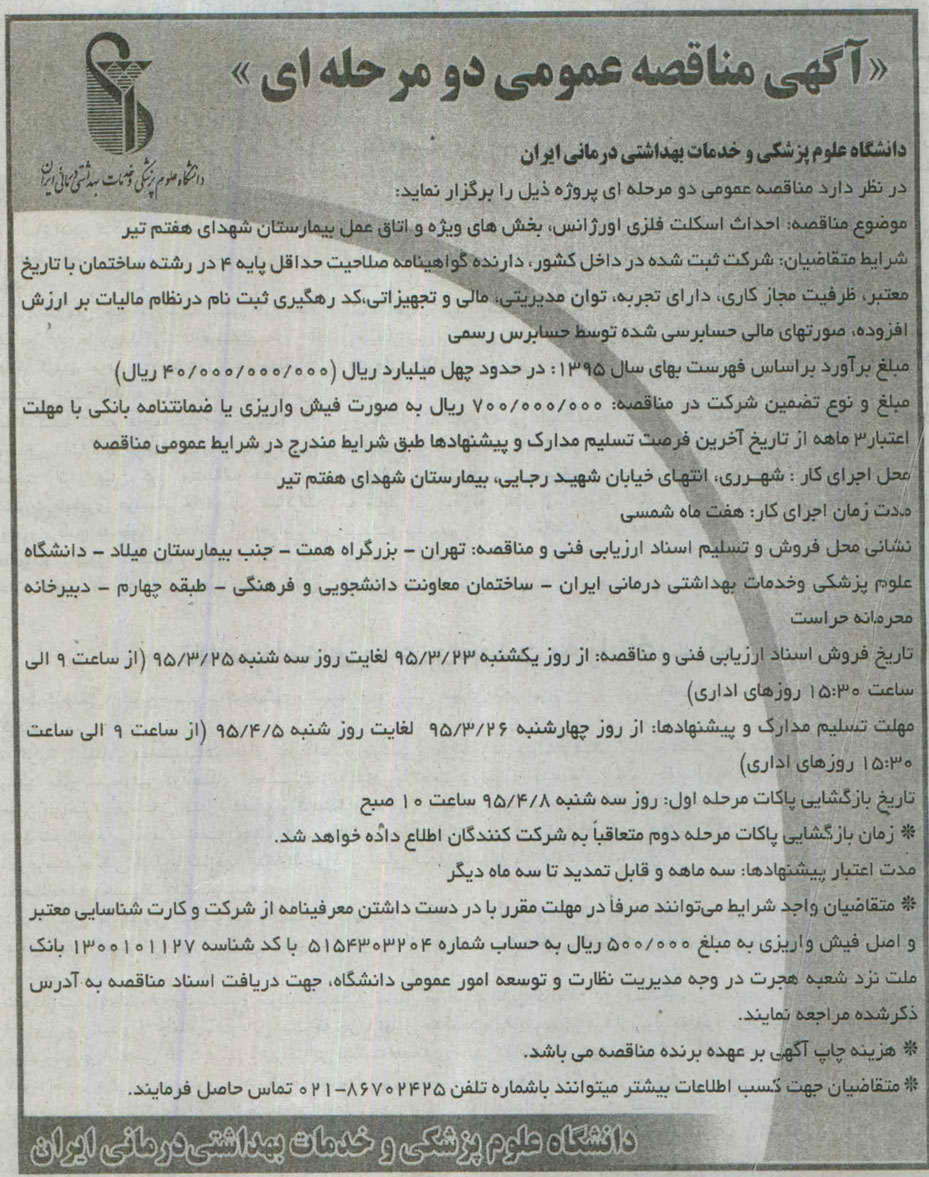 «آگهی مناقصه عمومی دو مرحله ای»
دانشگاه علوم پزشکی و خدمات بهداشتی درمانی ایران
دانشگاه علوم پزشکی و خدمات بهداشتی درمانی ایران
در نظر دارد مناقصه عمومی دو مرحله ای پروژه ذیل را برگزار نماید:
موضوع مناقصه: احداث اسکلت فلزی اورژانس، بخش های ویژه و اتاق عمل بیمارستان شهدای هفتم تیر
شرایط متقاضیان: شرکت ثبت شده در داخل کشور، دارنده گواهینامه صلاحیت حداقل پایه ۴ در رشته ساختمان با تاریخ
معتبر، ظرفیت مجاز کاری، دارای تجربه، توان مدیریتی، مالی و تجهیزاتی،کد رهگیری ثبت نام درنظام مالیات بر ارزش
افزوده، صورتهای مالی حسابرسی شده توسط حسابرس رسمی
مبلغ برآورد براساس فهرست بهای سال ۱۳۹۵: در حدود چهل میلیارد ریال (۴۰/۰۰۰/۰۰۰/۰۰۰ ریال)
مبلغ و نوع تضمین شرکت در مناقصه: ۷۰۰/۰۰۰/۰۰۰ ریال به صورت فیش واریزی یا ضمانتنامه بانکی با مهلت
اعتبار۳ ماهه از تاریخ آخرین فرصت تسلیم مدارک و پیشنهادها طبق شرایط مندرج در شرایط عمومی مناقصه
محل اجرای کار : شهرری، انتهای خیابان شهید رجایی، بیمارستان شهدای هفتم تیر
مدت زمان اجرای کار: هفت ماه شمسی
نشانی محل فروش و تسلیم اسناد ارزیابی فنی و مناقصه: تهران - بزرگراه همت - جنب بیمارستان میلاد - دانشگاه
علوم پزشکی وخدمات بهداشتی درمانی ایران - ساختمان معاونت دانشجویی و فرهنگی - طبقه چهارم - دبیرخانه
محرمانه حراست
تاریخ فروش اسناد ارزیابی فنی و مناقصه: از روز یکشنبه ۹۵/۳/۲۳ لغایت روز سه شنبه ۹۵/۳/۲۵ (از ساعت ۹ الی
ساعت ۱۵:۳۰ روزهای اداری)
مهلت تسلیم مدارک و پیشنهادها: از روز چهارشنبه ۹۵/۳/۲۶ لغایت روز شنبه ۹۵/۴/۵ (از ساعت ۹ الی ساعت
۱۵:۳۰ روزهای اداری)
تاریخ بازگشایی پاکات مرحله اول: روز سه شنبه ۹۵/۴/۸ ساعت ۱۰ صبح
* زمان بازگشایی پاکات مرحله دوم متعاقباً به شرکت کنندگان اطلاع داده خواهد شد.
مدت اعتبار پیشنهادها: سه ماهه و قابل تمدید تا سه ماه دیگر
* متقاضیان واجد شرایط می‌توانند صرفاً در مهلت مقرر با در دست داشتن معرفینامه از شرکت و کارت شناسایی معتبر
و اصل فیش واریزی به مبلغ ۵۰۰/۰۰۰ ریال به حساب شماره ۵۱۵۴۳۰۳۲۰۴ با کد شناسه ۱۳۰۰۱۰۱۱۲۷ بانک
ملت نزد شعبه هجرت در وجه مدیریت نظارت و توسعه امور عمومی دانشگاه، جهت دریافت اسناد مناقصه به آدرس
ذکرشده مراجعه نمایند.
* هزینه چاپ آگهی بر عهده برنده مناقصه می باشد.
* متقاضیان جهت کسب اطلاعات بیشتر میتوانند باشماره تلفن ۸۶۷۰۲۴۲۵-۰۲۱ تماس حاصل فرمایند.
دانشگاه علوم پزشکی و خدمات بهداشتی درمانی ایران